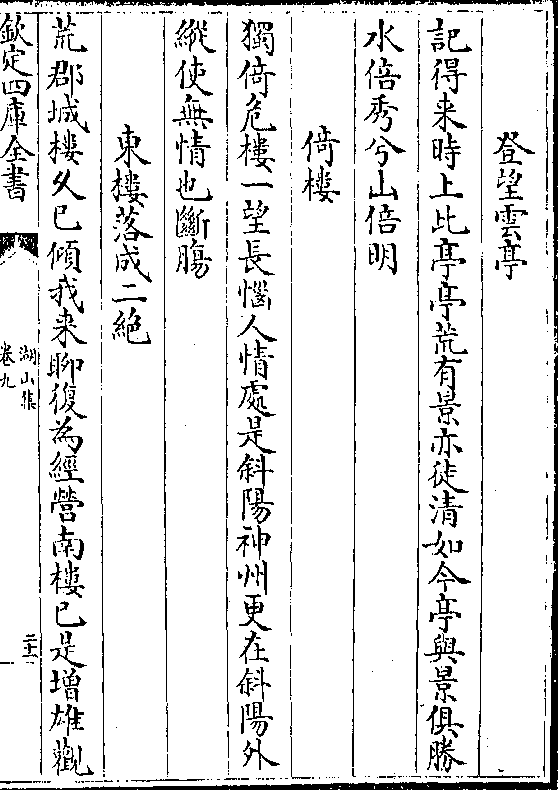 登望雲亭
記得来時上此亭亭荒有景亦徒清如今亭與景俱勝
水倍秀兮山倍明
倚樓
獨倚危樓一望長惱人情處是斜陽神州更在斜陽外
縱使無情也斷腸
東樓落成二絶
荒郡城樓久已傾我来聊復為經營南樓已是增雄觀
欽定四庫全書
湖山集
卷九
二十一